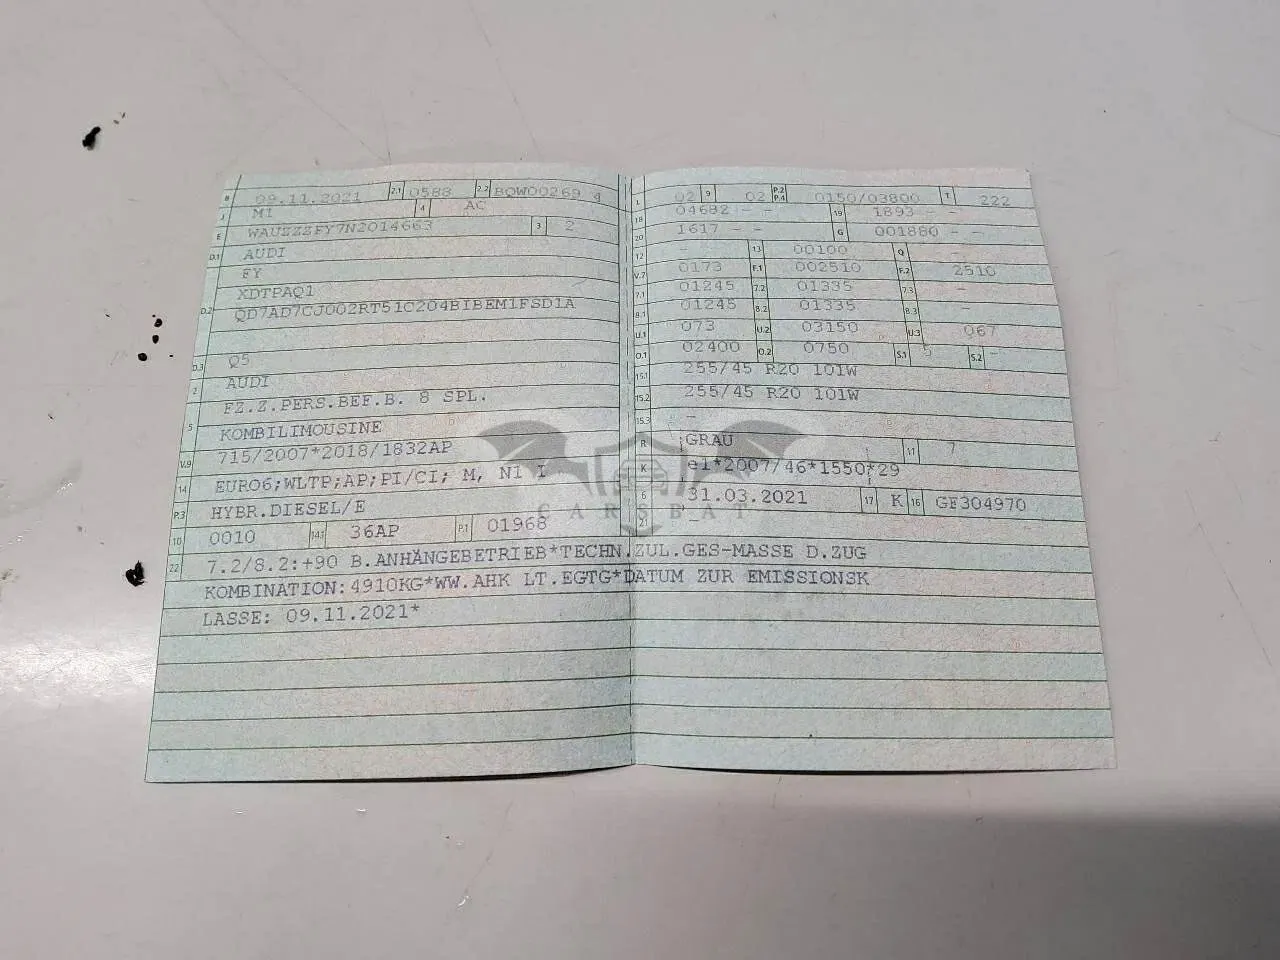 B 09.11.2021 2.1 0588 2.2 BQW00269 4
J M1 4 AC
E WAUZZZFY7N2014663 3 2
D.1 AUDI
FY
XDTPAQ1
D.2 QD7AD7CJ002RT51C204BIBEM1FSD1A
D.3 Q5
2 AUDI
FZ.Z.PERS.BEF.B. 8 SPL.
5 KOMBILIMOUSINE
V.9 715/2007*2018/1832AP
14 EURO6;WLTP;AP;PI/CI; M, N1 I
P.3 HYBR.DIESEL/E
10 0010 14.1 36AP P.1 01968
L 02 9 02 P.2 P.4 0150/03800 T 222
18 04682 - - 19 1893 - -
20 1617 - - G 001880 - -
12 - 13 00100 Q
V.7 0173 F.1 002510 F.2 2510
7.1 01245 7.2 01335 7.3 -
8.1 01245 8.2 01335 8.3 -
U.1 073 U.2 03150 U.3 067
O.1 02400 O.2 0750 S.1 5 S.2 -
15.1 255/45 R20 101W
15.2 255/45 R20 101W
15.3 -
R GRAU 11 7
K e1*2007/46*1550*29
6 31.03.2021 17 K 16 GF304970
21 -
22 7.2/8.2:+90 B.ANHÄNGEBETRIEB*TECHN.ZUL.GES-MASSE D.ZUG
KOMBINATION:4910KG*WW.AHK LT.EGTG*DATUM ZUR EMISSIONSK
LASSE: 09.11.2021*
CARSBAT